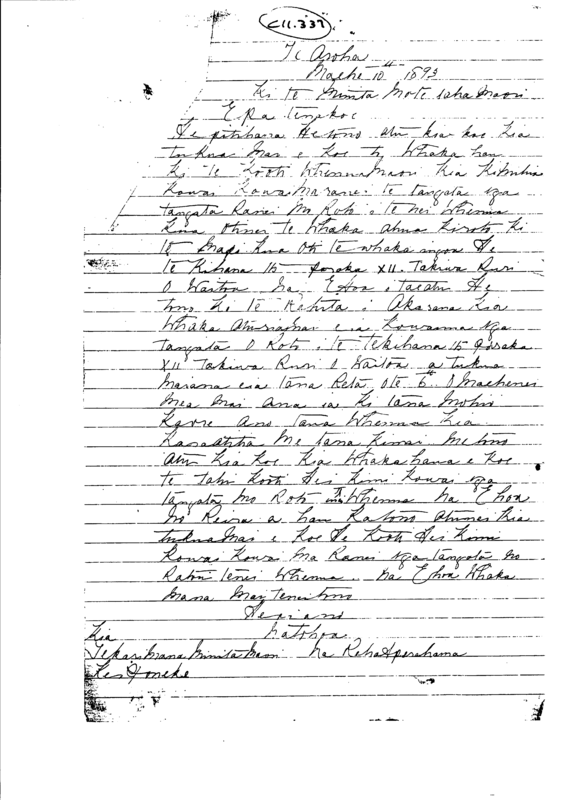 C11.337
Te Aroha
Maehe 10th 1893
Ki te Minita mo te taha Maori
E Pa tena koe
He pitihana He tono atu kia koe kia
tukua Mai e koe he Whaka hau
ki te Kooti Whenua Maori kia kimihia
kowai kowa Maranei te tangata nga
tangata Ranei Mo Roto i te nei Whenua
kua te Whaka atuna kiroto ki
te Mapi kua Oti te whaka
te Kihana 16 poraka XII. Takiwa Ruri
O Waitoa Na E Hoa i He
tono ki te Rehita i Akarana kia
Whaka e ia kowaima nga
tangata O Roto i te Tekihana 16 poraka
XII Takiwa Ruri O Waitoa a tukua
Maiana e ia tana Reta o te 6 O Maehenei
Mea Mai Ana ia ki tana Mohio
Kaore Ano tana Whenua kia
Me tana kimai Me tono
Atu kia koe kia Whakahaua e koe
te tahi Kooti Hei kimi kowai nga
tangata Mo Roto Whenua Na E hoa
Mo Reira a hau ka tono atunei kia
tukua Mai e koe He Kooti Hei kimi
kowa kowa Ma Ranei nga tangata Mo
Roto i tenei Whenua. Na E hoa Whaka
Mana Mai tenei tono
Heoi ano
Na to hoa
Kia
Te Karimana Minita Maori Na Reha Aperahama
Kei Poneke